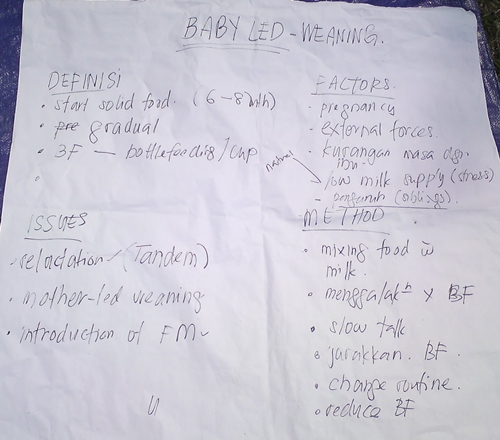 BABY LED - WEANING.
DEFINISI
• start solid food. (6-8mth)
• gradual
• 3F — bottlefeeding/cup
•
ISSUES
• relactation (Tandem)
• mother-led weaning
• introduction of FM
FACTORS.
• pregnancy
• external forces.
• kurangan masa dgn
ibu.
natural
low milk supply (stress)
- pengaruh (siblings).
METHOD
• mixing food w
milk.
• menggalakn x BF
• slow talk
• jarakkan BF.
• change routine.
• reduce BF